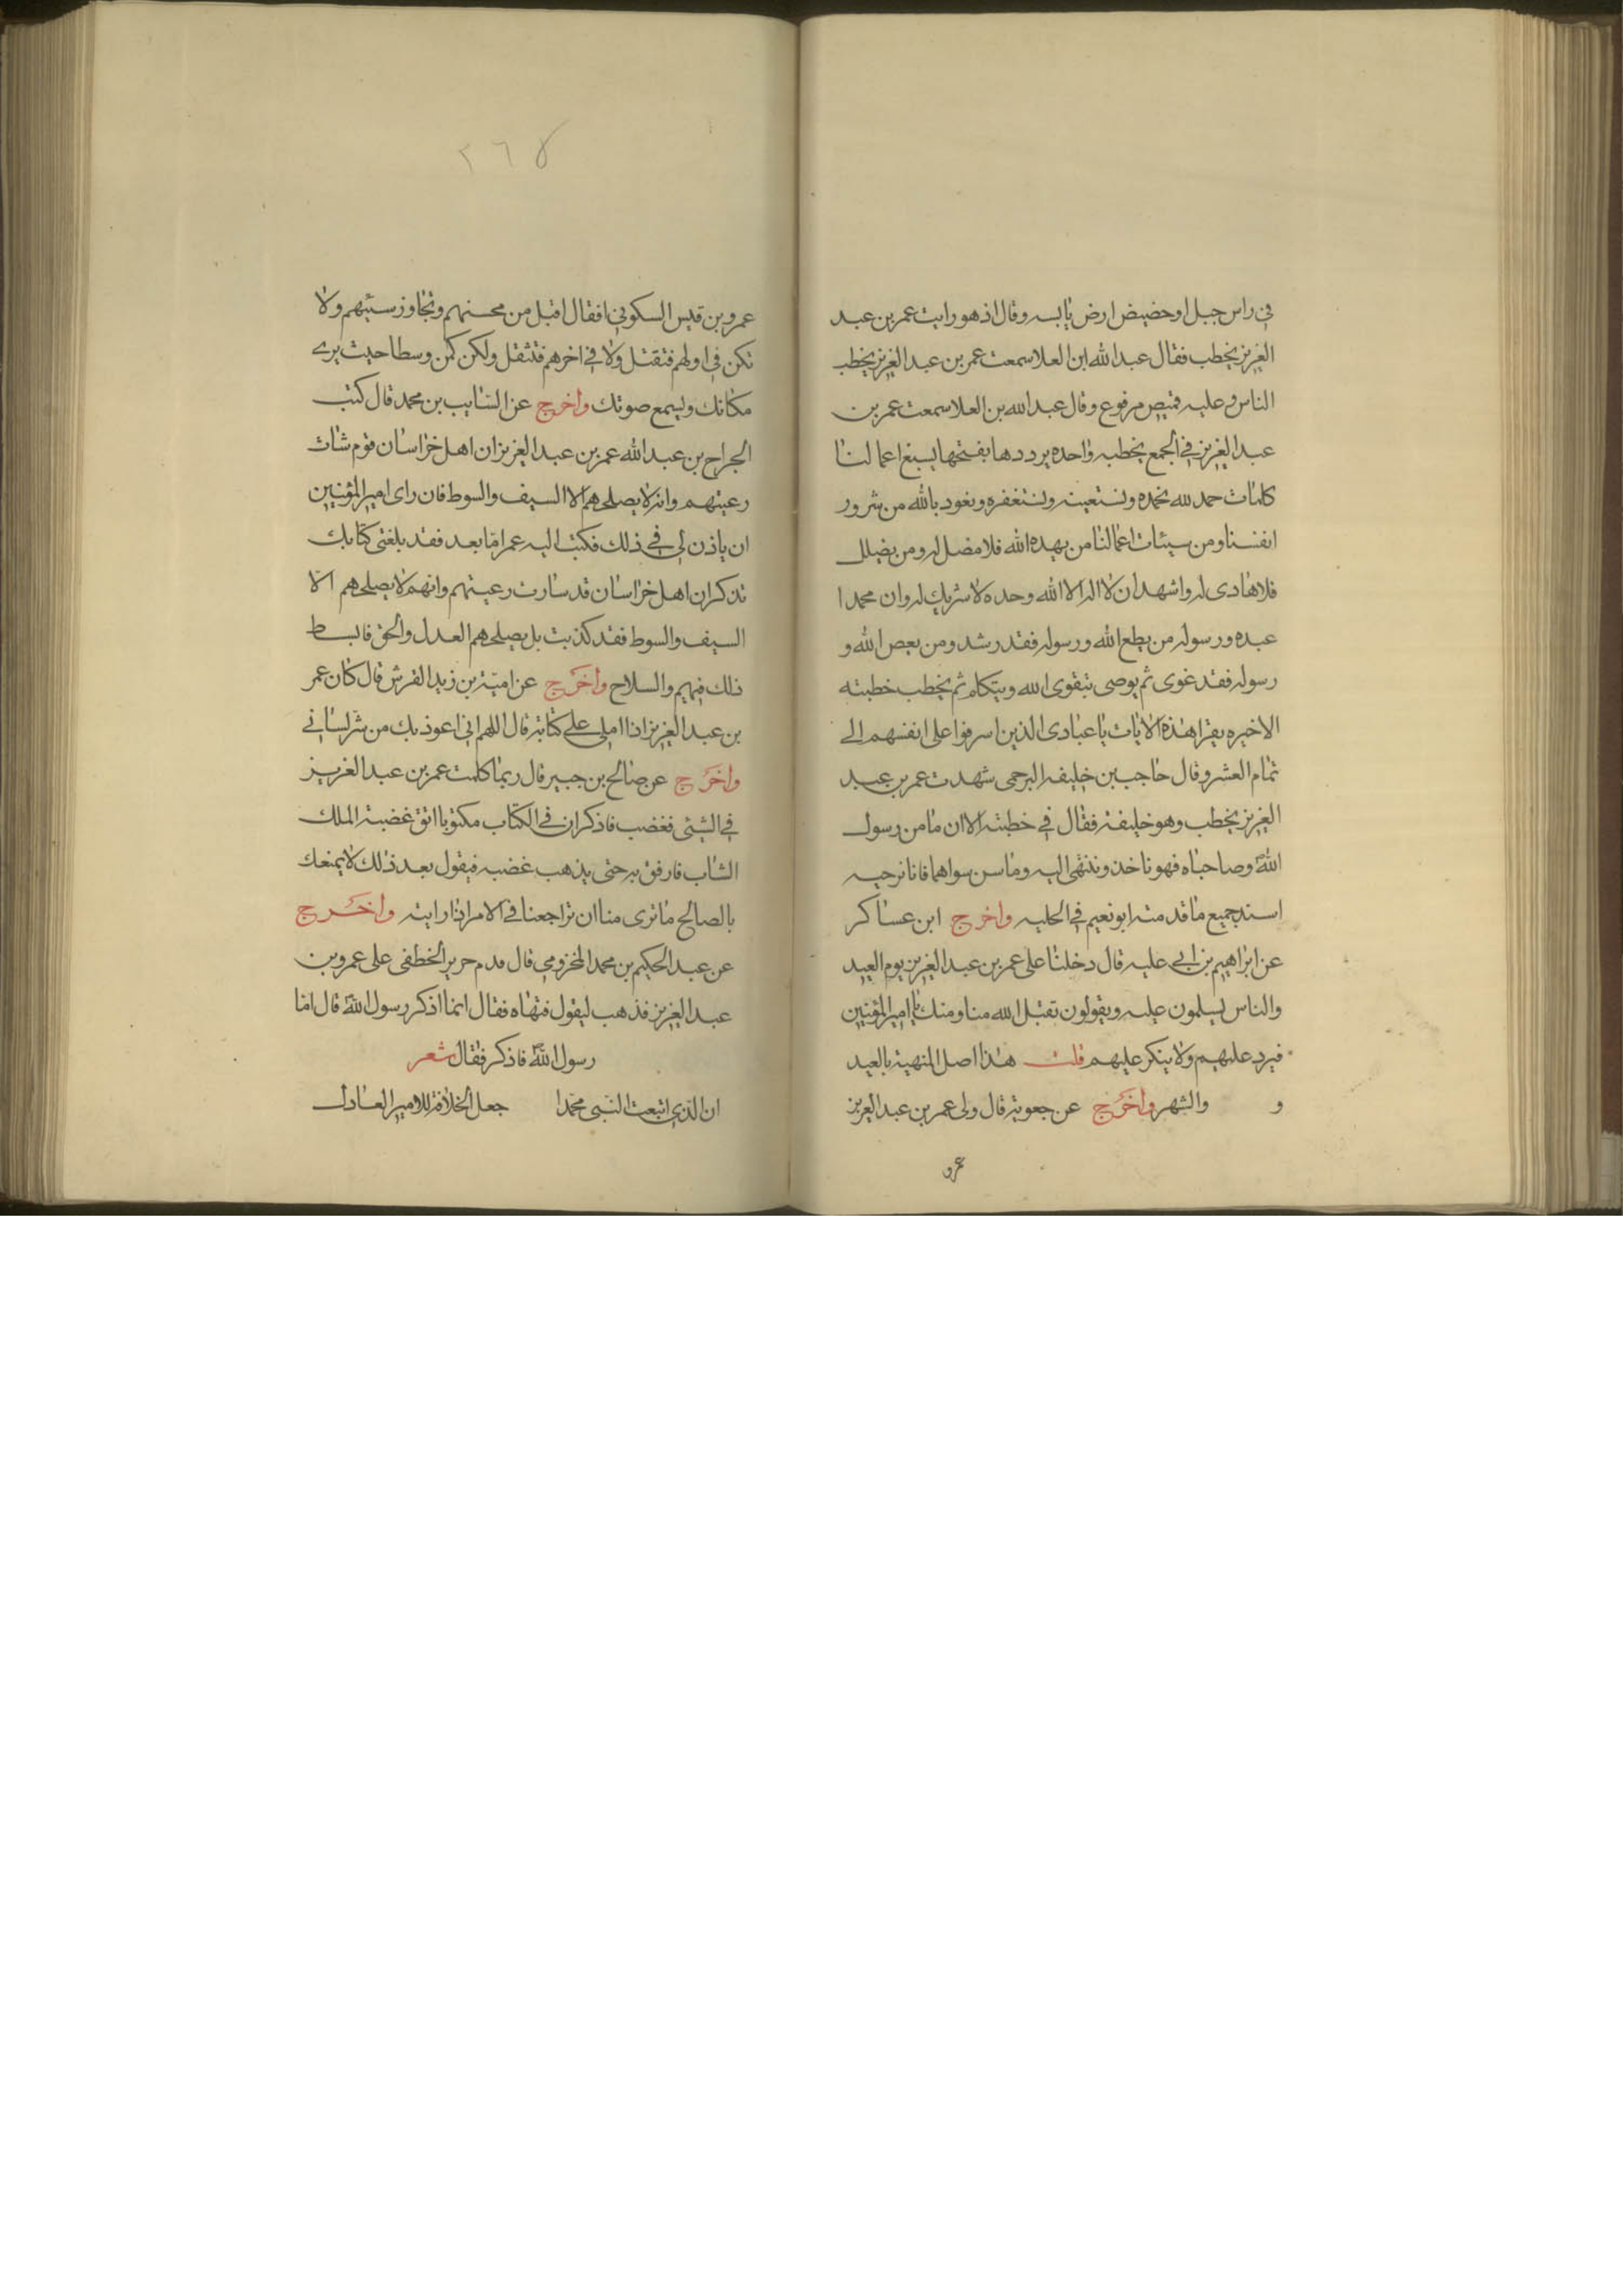 في راس جبل او حضيض ارض يابسه وقال اذهو رايت عمر بن عبد
العزيز يخطب فقال عبد الله ابن العلا سمعت عمر بن عبد العزيز يخطب
الناس وعليه قميص مرفوع وقال عبد الله بن العلا سمعت عمر بن
عبد العزيز في الجمع بخطبه واحده يرددها بفتحها بسبع اعمالنا
كلمات حمد لله نحمده ونستعينه ونستغفره ونعود بالله من شرور
انفسنا ومن سيئات اعمالنا من يهده الله فلا مضل له ومن يضلل
فلا هادى له واشهد ان لا اله الا الله وحده لا شريك له وان محمدا
عبده ورسوله من يطع الله ورسوله فقد رشد ومن يعص الله و
رسوله فقد غوى ثم يوصى بتقوى الله ويتكلم ثم يخطب خطبته
الاخيره يقرا هذه الايات يا عبادى الذين اسرفوا على انفسهم الى
تمام العشر وقال حاجب بن خليفه البرجمى شهدت عمر بن عبد
العزيز يخطب وهو خليفة فقال في خطبته الا ان ما من رسول
الله وصاحباه فهو ناخذ وننتهى اليه وما سن سواهما فانا نرجيه
اسند جميع ما قدمته ابو نعيم في الحليه واخرج ابن عساكر
عن ابراهيم بن ابي عليه قال دخلنا على عمر بن عبد العزيز يوم العيد
والناس يسلمون عليه ويقولون تقبل الله منا ومنك يا امير المؤمنين
فيرد عليهم ولا ينكر عليهم قلت هذا اصل المنهية بالعيد
و والشهر واخرج عن جعوية قال ولى عمر بن عبد العزيز
عمرو
٢٦٨
عمرو بن قيس السكوني فقال اقبل من محسنهم وتجاوز سيئهم ولا
تكن في اولهم فتقتل ولا في اخرهم فتثقل ولكن كن وسطا حيث يرى
مكانك ويسمع صوتك واخرج عن السايب بن محمد قال كتب
الجراح بن عبد الله عمر بن عبد العزيز ان اهل خراسان قوم شات
رعيتهم وانه لا يصلحهم الا السيف والسوط فان راى امير المؤمنين
ان ياذن لى في ذلك فكتب اليه عمر اما بعد فقد بلغنى كتابك
تذكر ان اهل خراسان قد سارت رعيتهم وانهم لا يصلحهم الا
السيف والسوط فقد كذبت بل يصلحهم العدل والحق فابسط
ذلك فيهم والسلاح واخرج عن امية بن زيد القرش قال كان عمر
بن عبد العزيز اذا املى على كتابة قال اللهم انى اعوذ بك من شر لسانى
واخرج عن صالح بن جبير قال ربما كلمت عمر بن عبد العزيز
في الشيئ فغضب فاذكر ان في الكتاب مكتوبا اتق غضبة الملك
الشاب فارفق به حتى يذهب غضبه فيقول بعد ذلك لا يمنعك
بالصالح ما ترى منا ان تراجعنا في الامر اذا رايته واخرج
عن عبد الحكيم بن محمد المخزومي قال قدم جرير الخطفى على عمر وبن
عبد العزيز فذهب ليقول فنهاه فقال انما اذكر رسول الله قال اما
رسول الله فاذكر فقال شعر
ان الذى ابتعث النبى محمدا جعل الخلافة للامير العادل